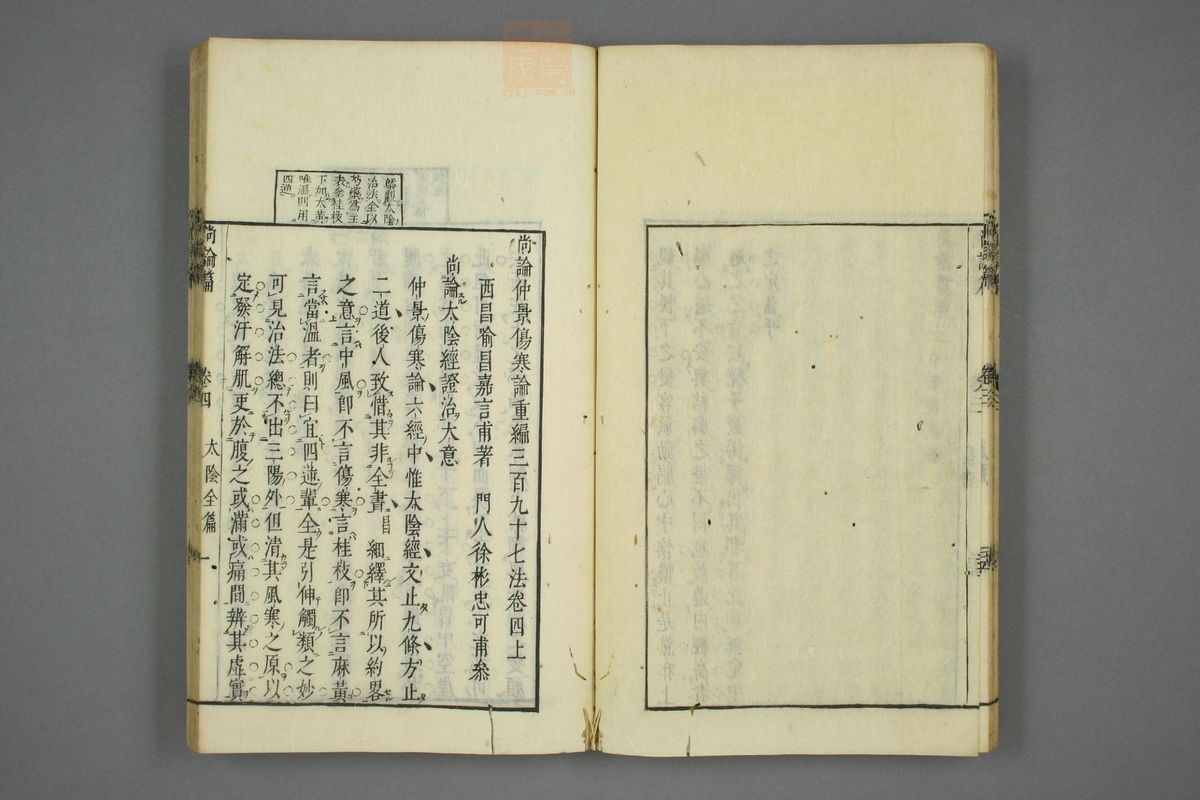 尚論仲景傷寒論重編三百九十七法卷四上
西昌喻昌嘉言甫著 門人徐彬忠可甫叅
尚論太陰經證治大意
仲景傷寒論六經中惟太陰經文止九條方止
二道後人致惜其非全書昌細繹其所以約畧
之意言中風卽不言傷寒言桂枝卽不言麻黃
言當溫者則曰宜四逆輩全是引伸觸類之妙
可見治法總不出三陽外但清其風寒之原以
定發汗解肌更於腹之或滿或痛間辨其虛實
太陰
治法全以
芍藥爲主
表桂枝
下加大黃
溫則用
四逆
尚論篇 卷四 太陰全篇 一
zysj.com.cn